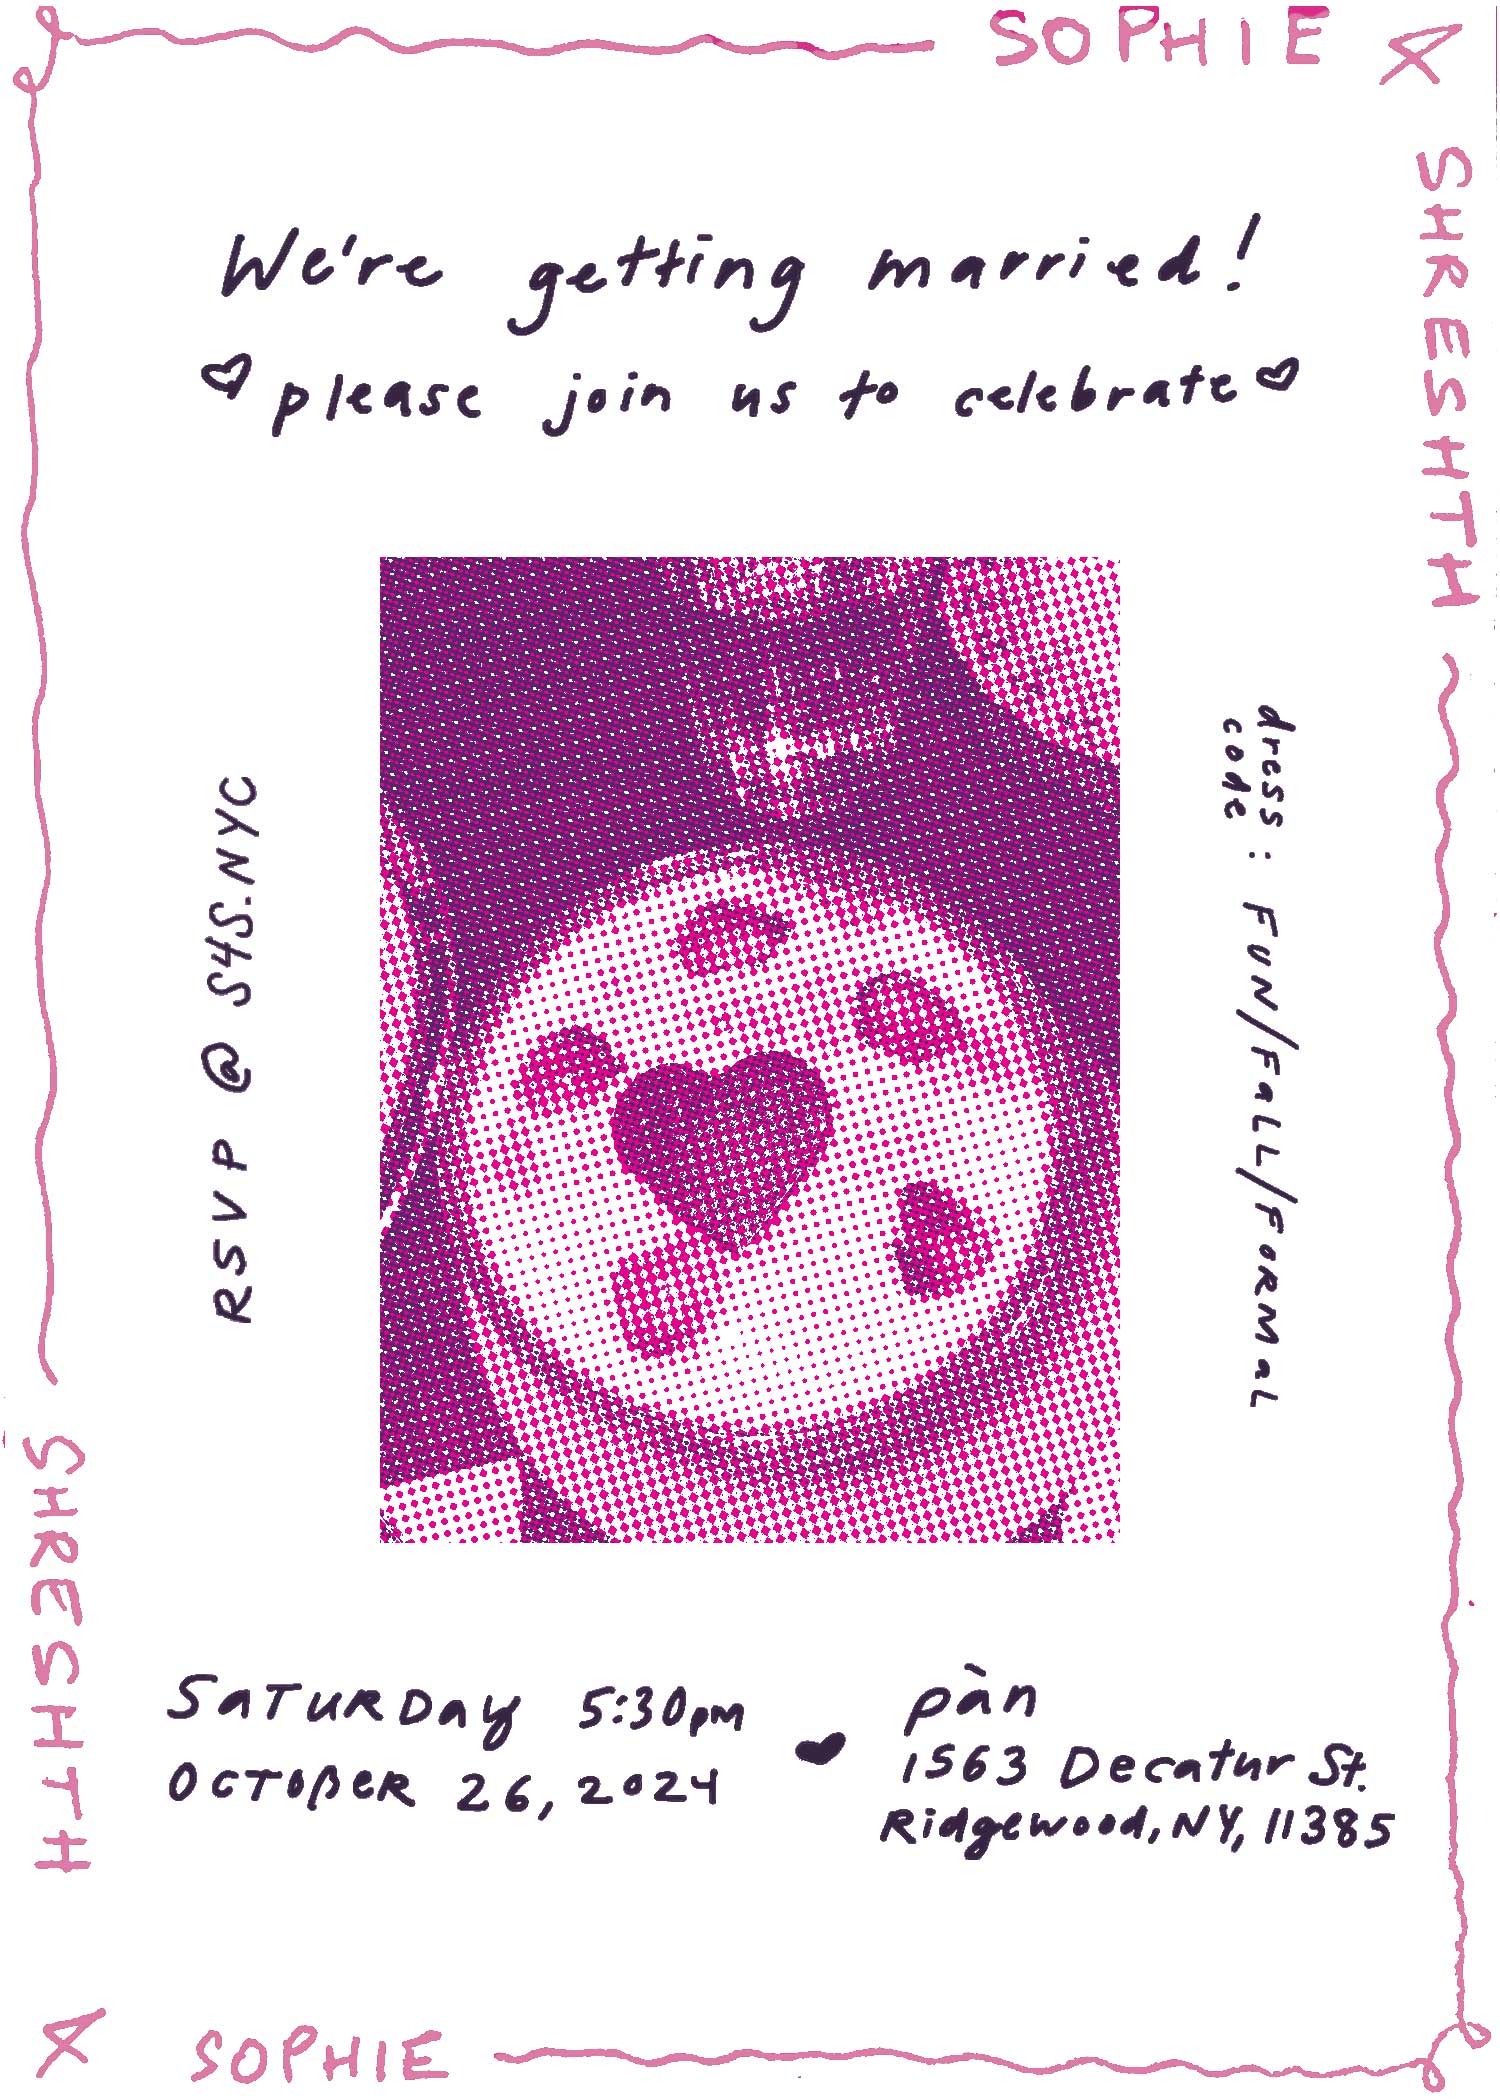 SOPHIE &
SHRESHTH
We're getting married!
please join us to celebrate
RSVP @ S4S.NYC
dress code: FUN/FALL/FORMAL
SATURDAY 5:30pm
OCTOBER 26, 2024
pàn
1563 Decatur St.
Ridgewood, NY, 11385
SHRESHTH
& SOPHIE